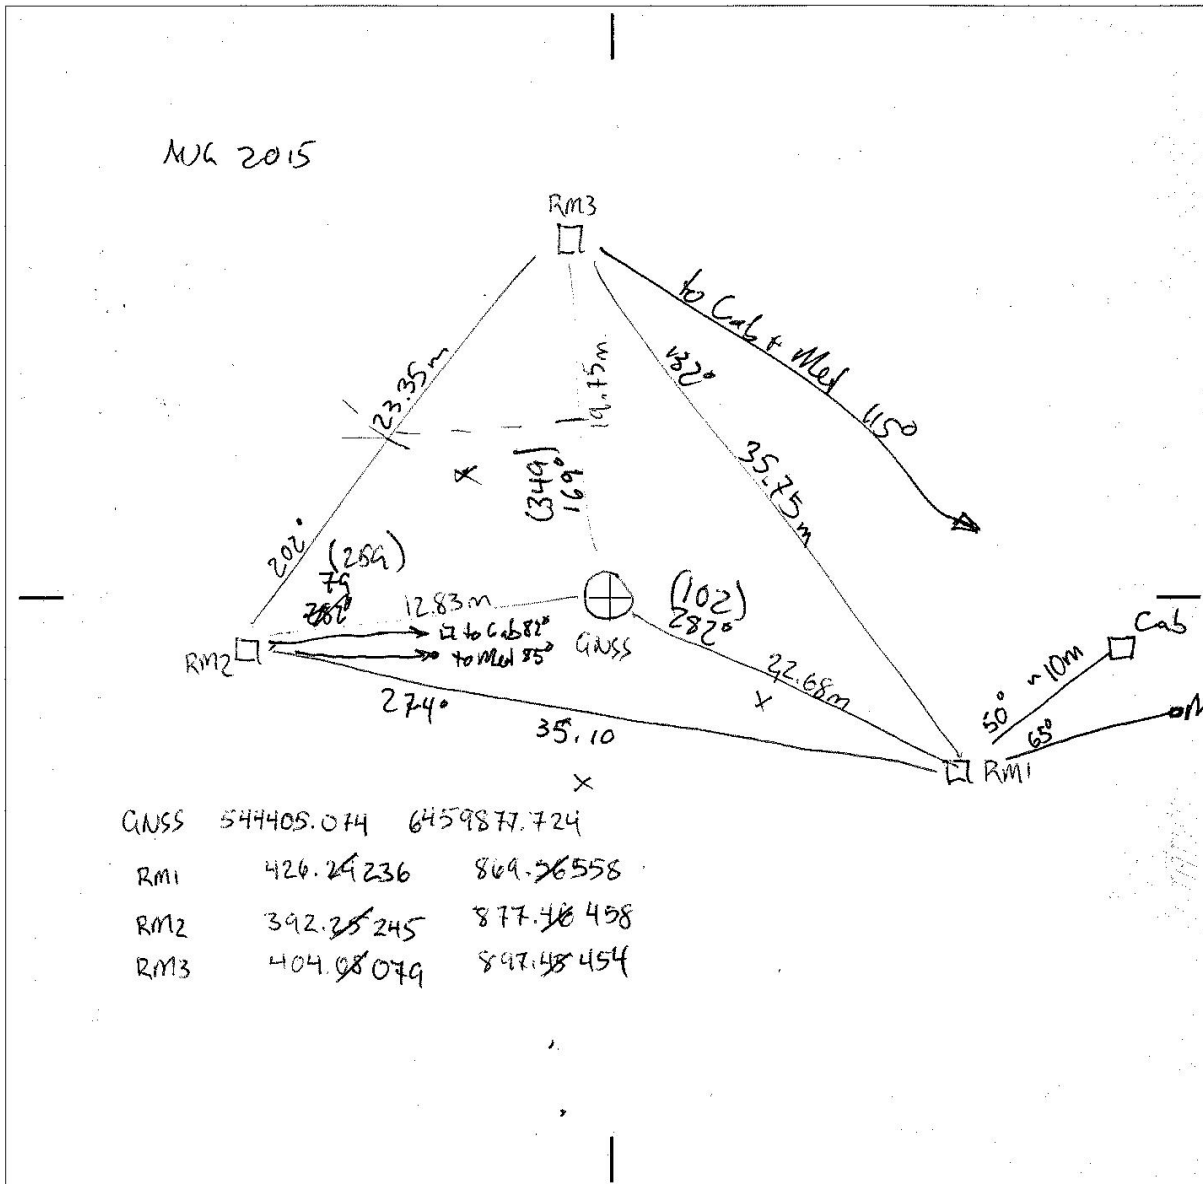 AUG 2015
RM3
to Cab + Met 115°
132°
23.35m
19.75m
35.75m
(349)
169°
202°
(259)
79
282°
12.83m
to Cab 82°
to Met 85°
RM2
GNSS
(102)
282°
22.68m
274°
35.10
Cab
50° ~10m
65°
M
RM1
GNSS 544405.074 6459877.724
RM1 426.29236 869.56558
RM2 392.35245 877.46458
RM3 404.08079 897.45454